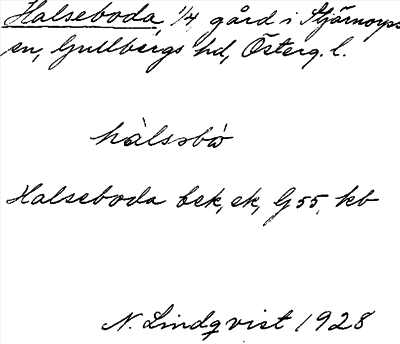 Halseboda, 1/4 gård i Stjärnorps
sn, Gullbergs hd, Österg. l.
hàlsəbò
Halseboda bek, ek, G 55, kb
N. Lindqvist 1928